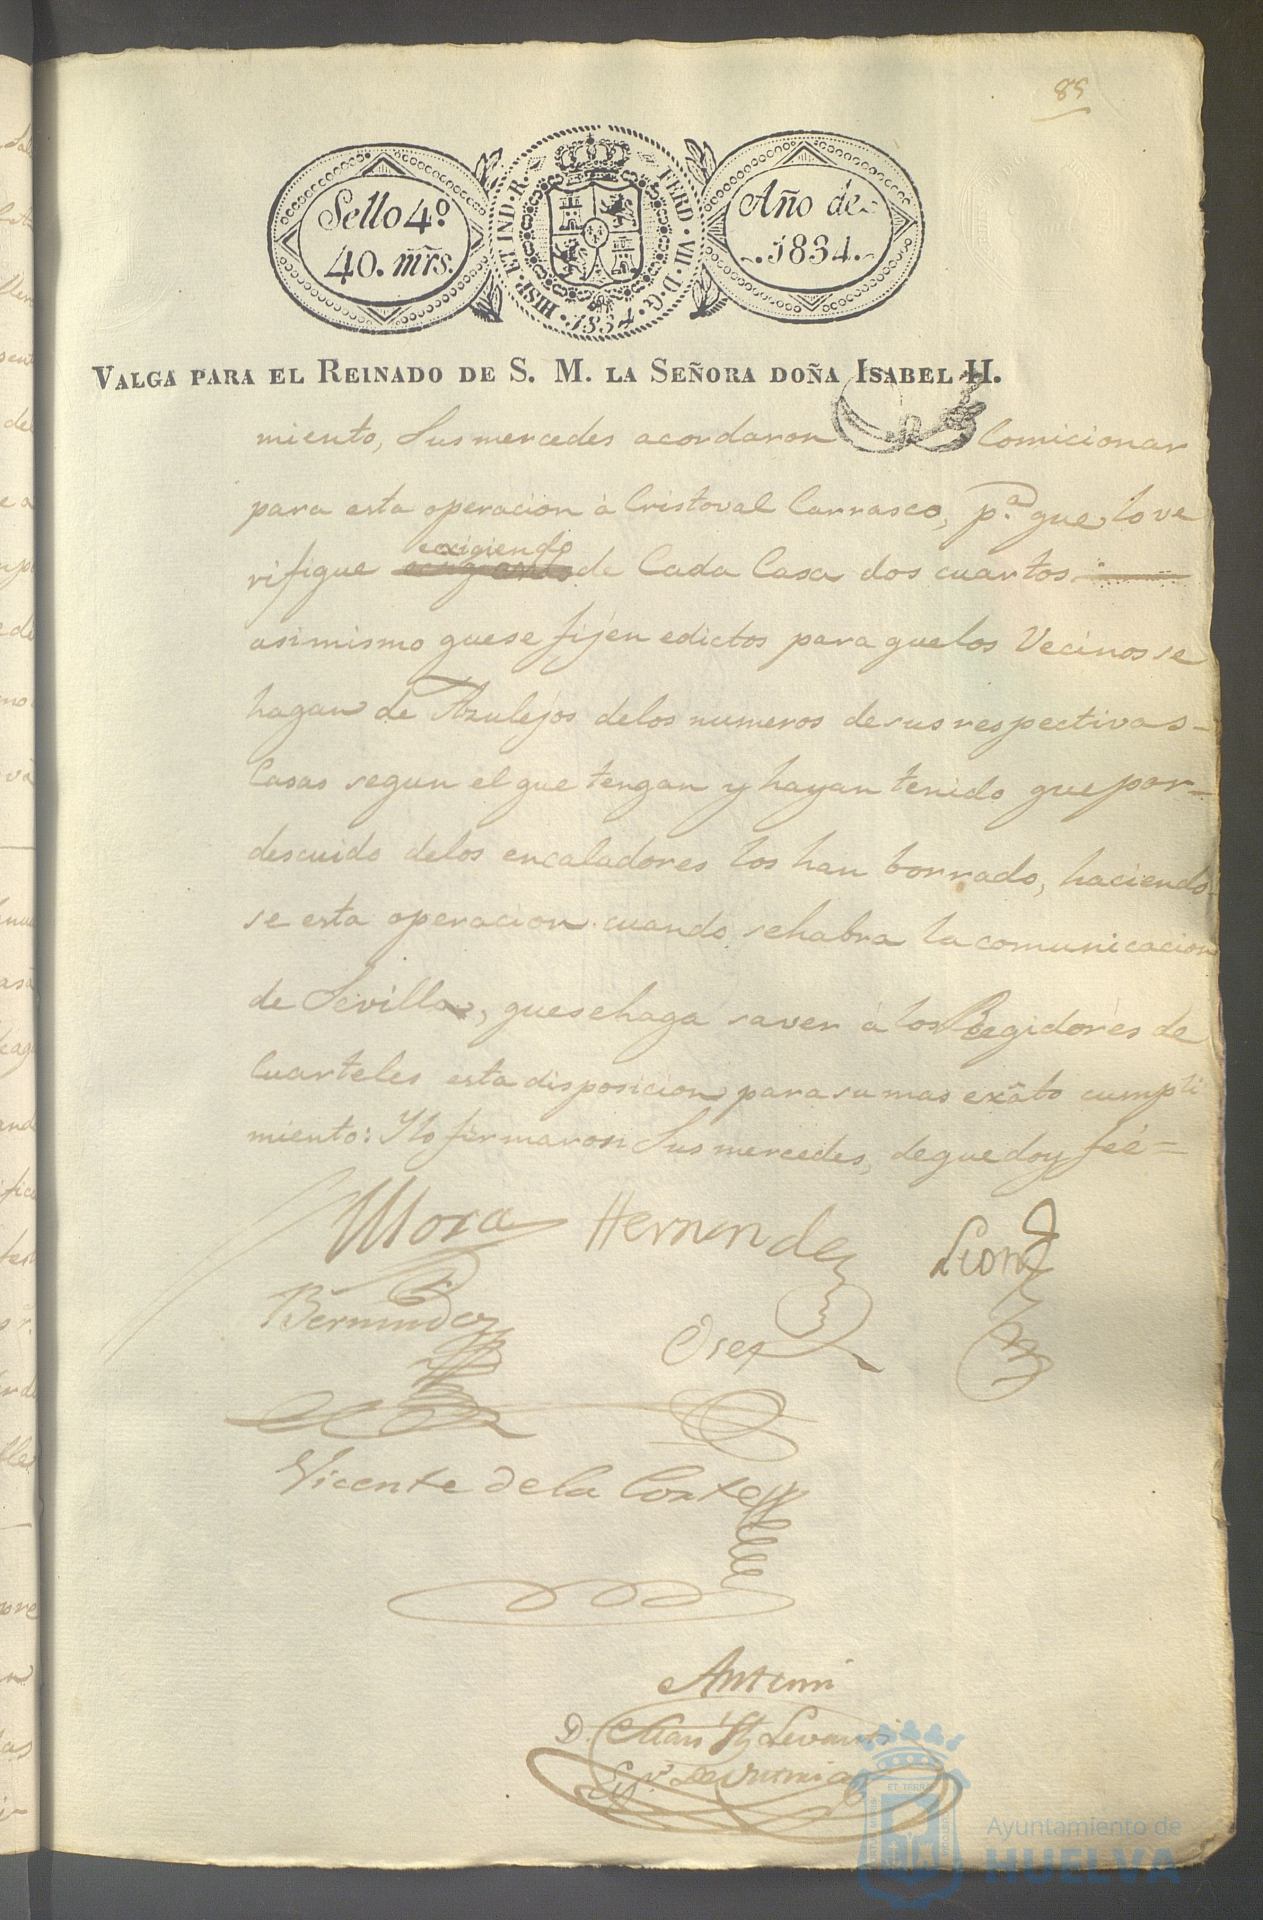 89
Sello 4º
40. mrs.
HISP. ET IND. R.
FERD. VII. D. G.
1834
Año de
1834.
VALGA PARA EL REINADO DE S. M. LA SEÑORA DOÑA ISABEL II.
miento, Sus mercedes acordaron Comicionar
para esta operacion á Cristoval Carrasco, p.ª que lo ve
exigiendo
rifique de Cada Casa dos cuartos
asimismo que se fijen edictos para que los Vecinos se
hagan de Azulejos de los numeros de sus respectivas
Casas segun el que tengan y hayan tenido que por
descuido de los encaladores los han borrado, haciendo
se esta operacion cuando se habra la comunicacion
de Sevilla, que se haga saver á los Regidores de
Cuarteles esta disposicion para su mas exãto cumpli
miento: Y lo firmaron Sus mercedes, de que doy fée=
Mora Hernandez Leon
Bermudez
Vicente de la Corte
Ante mi
D.
Ayuntamiento de
HUELVA